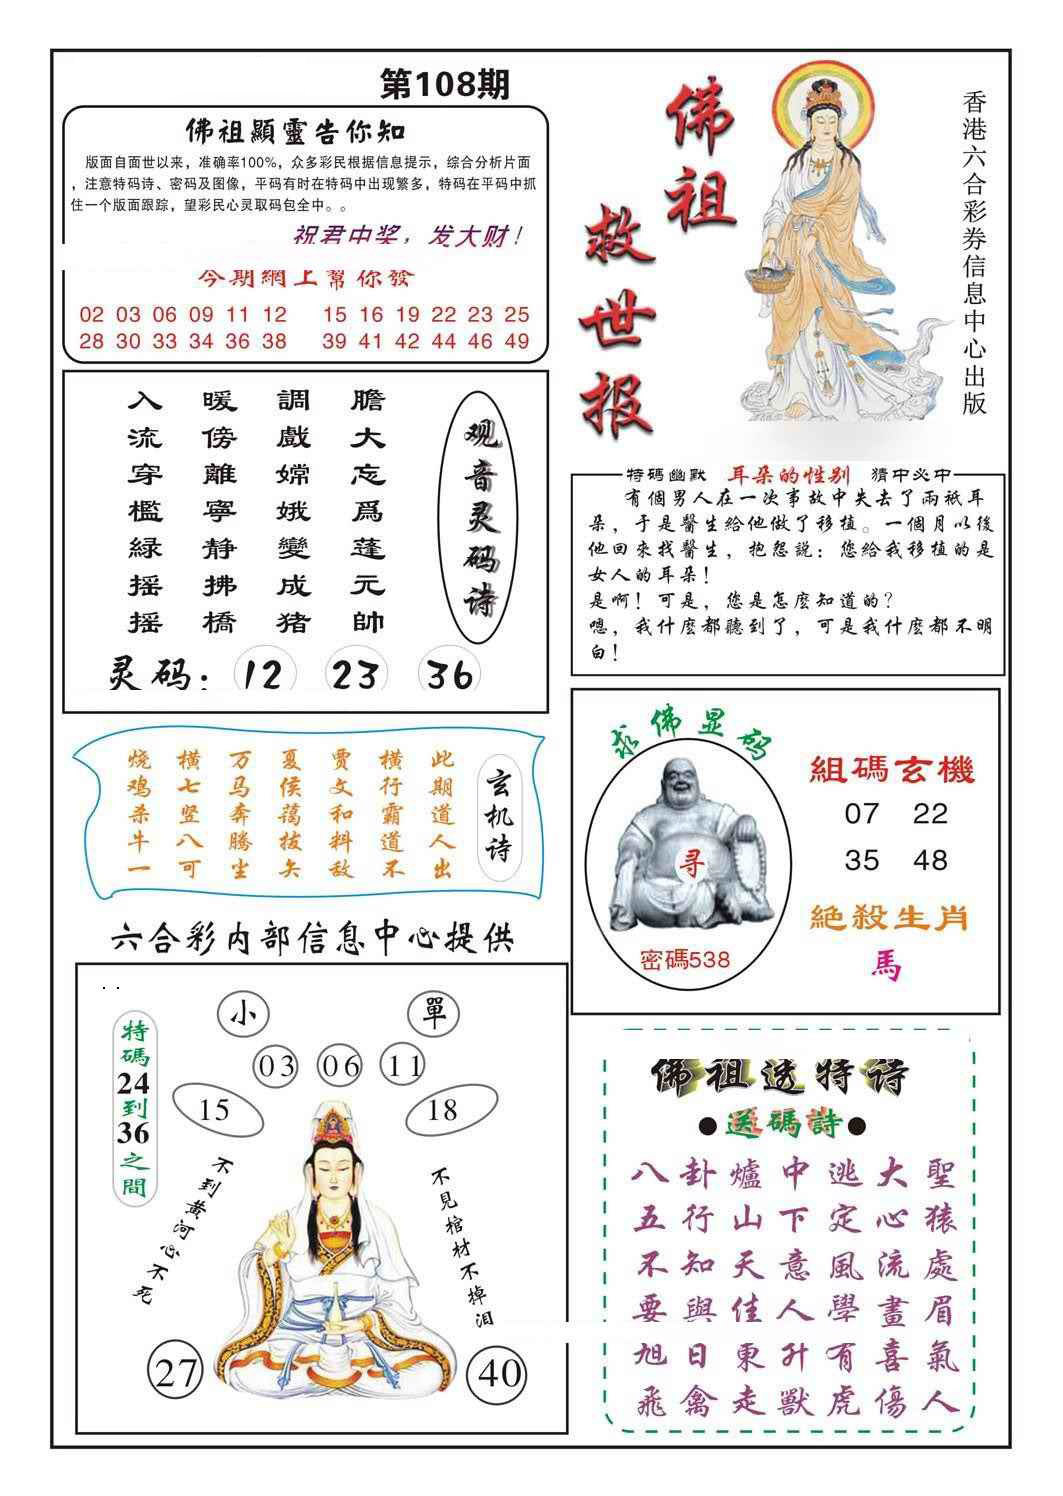 第108期
佛祖顯靈告你知
版面自面世以来，准确率100%，众多彩民根据信息提示，综合分析片面
，注意特码诗、密码及图像，平码有时在特码中出现繁多，特码在平码中抓
住一个版面跟踪，望彩民心灵取码包全中。。
祝君中奖，发大财！
今期網上幫你發
02 03 06 09 11 12 15 16 19 22 23 25
28 30 33 34 36 38 39 41 42 44 46 49
佛祖
救世报
香港六合彩券信息中心出版
膽大忘爲蓬元帥
調戲嫦娥變成猪
暖傍離寧静拂橋
入流穿檻緑摇摇
观音灵码诗
灵码：12 23 36
特碼幽默 耳朵的性别 猜中必中
有個男人在一次事故中失去了兩祇耳
朵，于是醫生給他做了移植。一個月以後
他回來找醫生，抱怨説：您給我移植的是
女人的耳朵！
是啊！可是，您是怎麽知道的？
嗯，我什麽都聽到了，可是我什麽都不明
白！
玄机诗
此期道人出
横行霸道不
贾文和料敌
夏侯蔼拔矢
万马奔腾生
横七竖八可
烧鸡杀牛一
求佛显码
寻
密碼538
組碼玄機
07 22
35 48
絶殺生肖
馬
六合彩内部信息中心提供
特碼24到36之間
小 單
03 06 11
15 18
不到黄河心不死
不见棺材不掉泪
27 40
佛祖透特诗
●送碼詩●
八卦爐中逃大聖
五行山下定心猿
不知天意風流處
要與佳人學畫眉
旭日東升有喜氣
飛禽走獸虎傷人